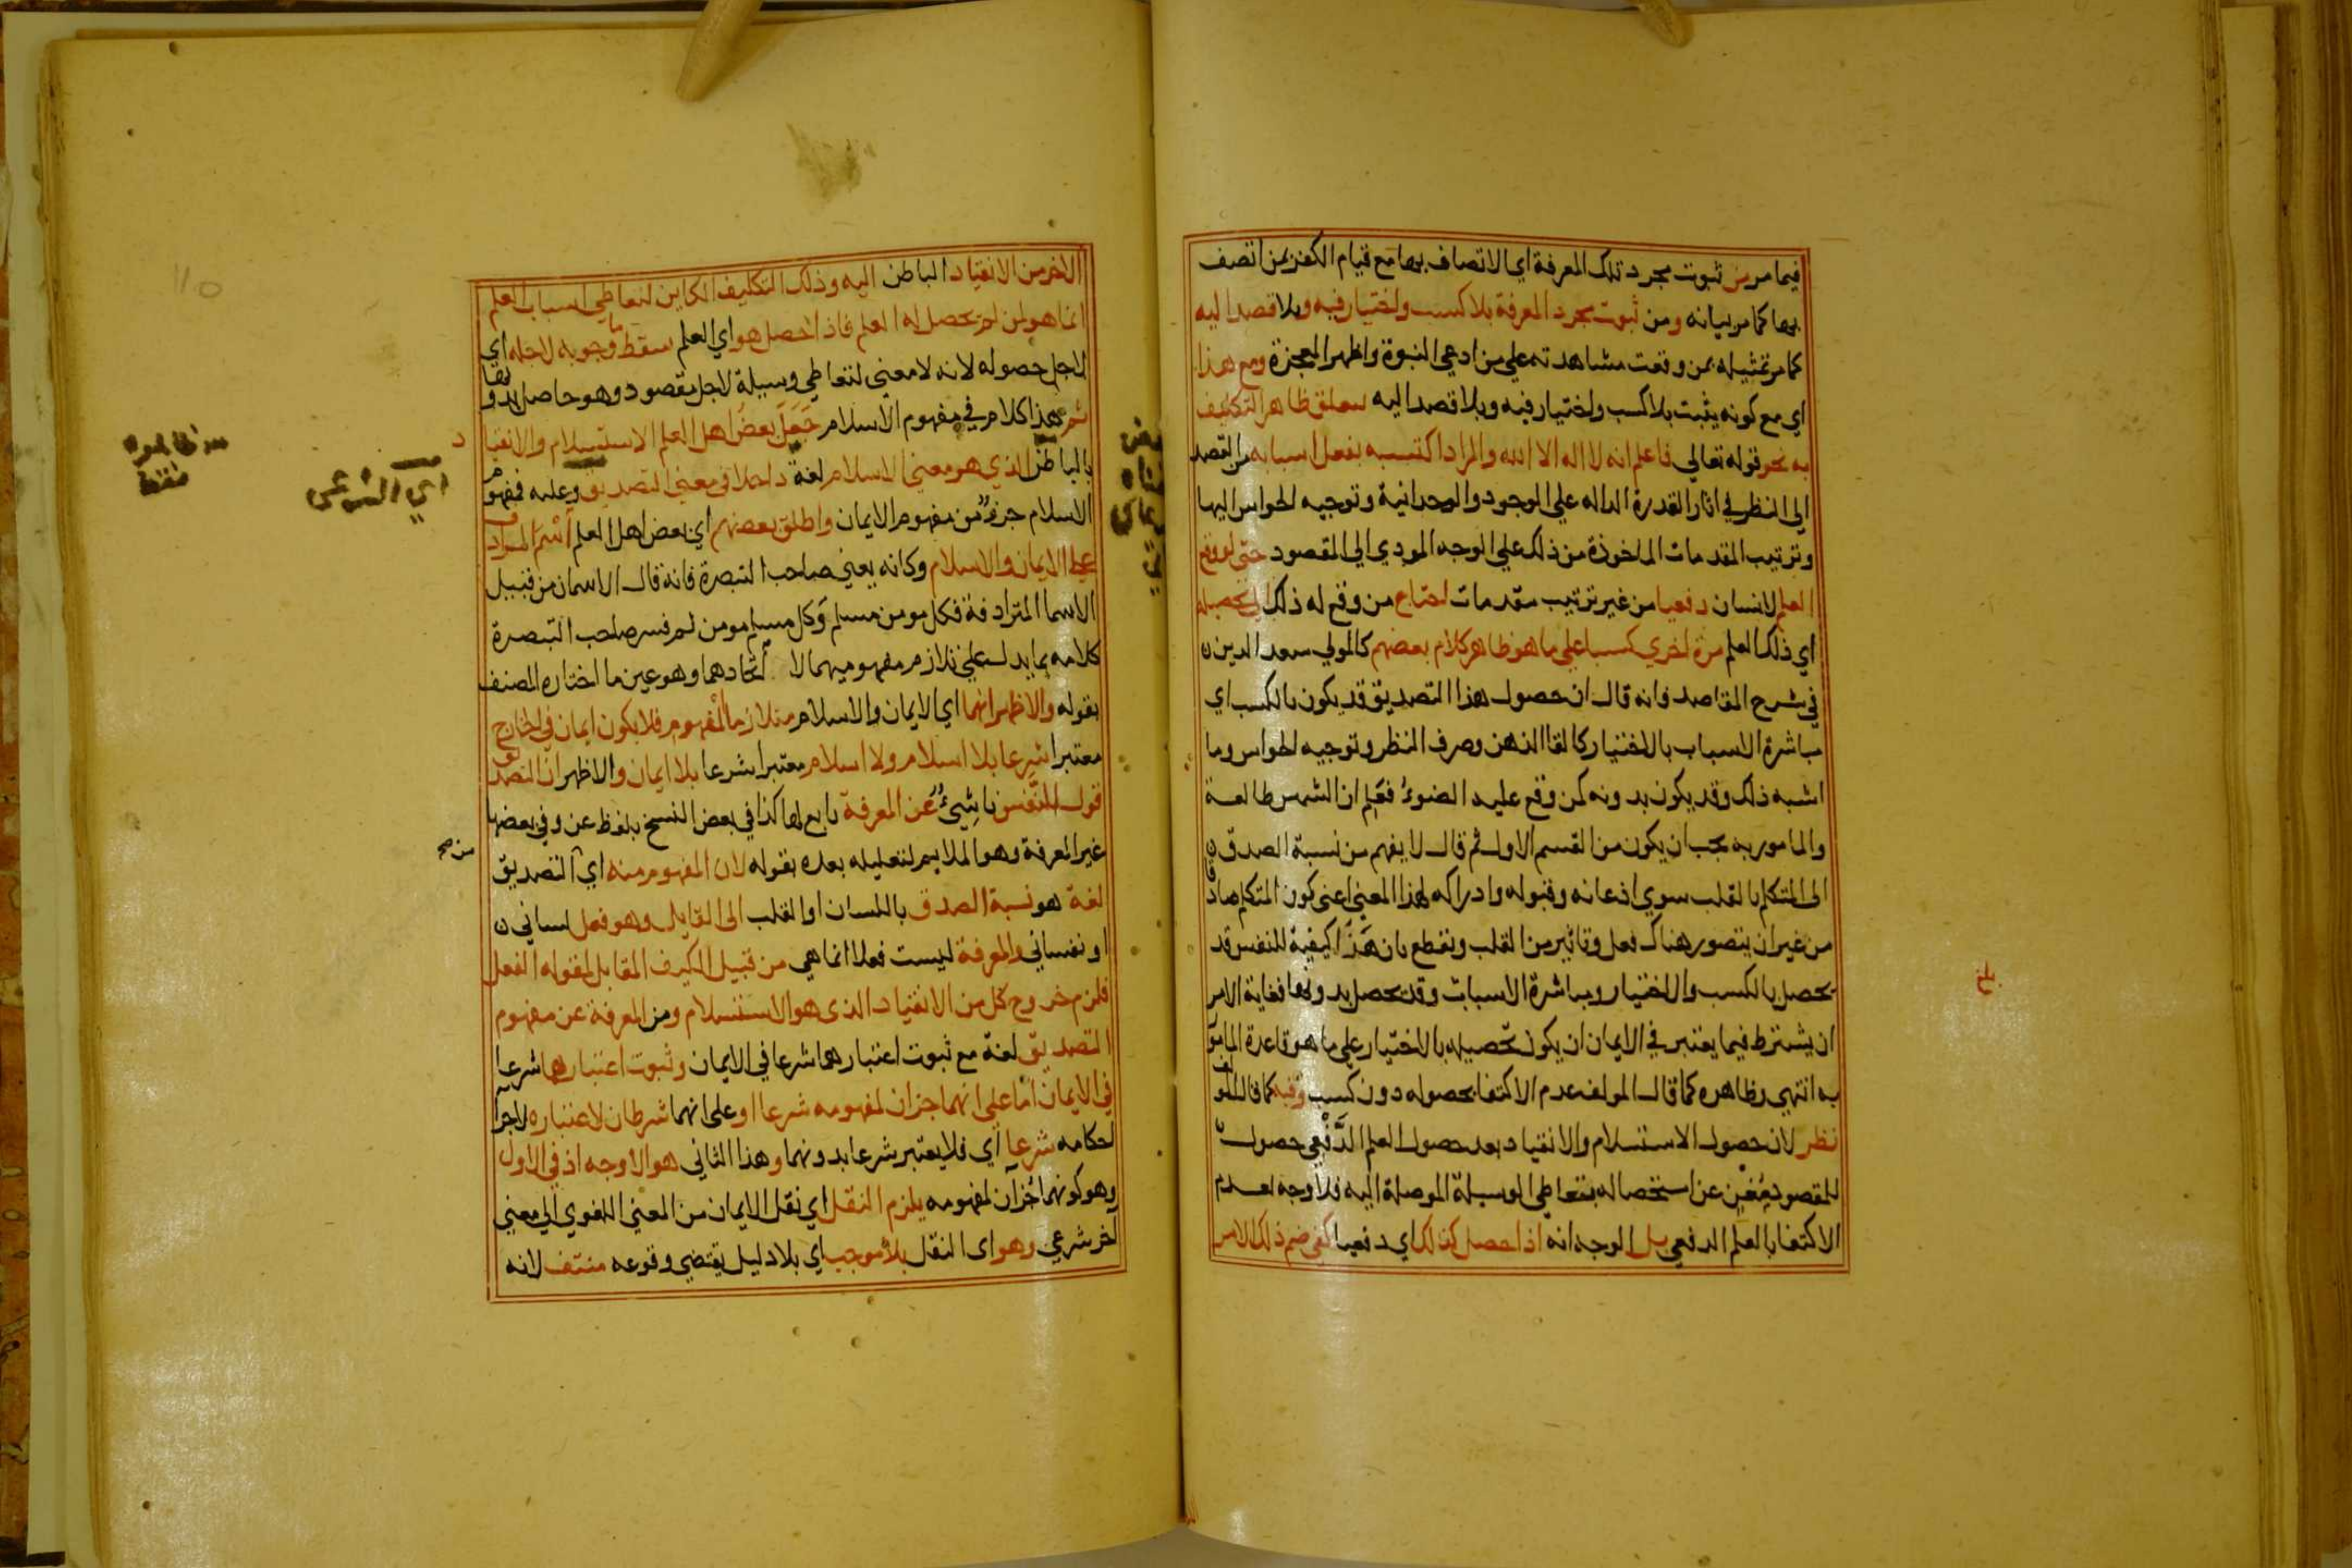 فيما مر من ثبوت مجرد تلك المعرفة اي الاتصاف بها مع قيام الكفر بمن اتصف
بها كما مر بيانه ومن ثبوت مجرد المعرفة بلا كسب واختيار فيه وبلا قصد اليه
كما مر تمثيله بمن وقعت مشاهدته على من ادعى النبوة واظهر المعجزة ومع هذا
اي مع كونه يثبت بلا كسب واختيار فيه وبلا قصد اليه يتعلق ظاهر التكليف
به نحو قوله تعالي فاعلم انه لا اله الا الله والمراد اكتسبه بفعل اسبابه من القصد
الي النظر في اثار القدرة الداله علي الوجود والوحدانية وتوجيه الحواس اليها
وترتيب المقدمات الماخوذة من ذلك علي الوجه المودي الي المقصود حتى لو وقع
العلم لانسان دفعيا من غير ترتيب مقدمات احتاج من وقع له ذلك الي تحصيله
اي ذلك العلم مرة اخري كسبا علي ما هو ظاهر كلام بعضهم كالمولي سعد الدين
في شرح المقاصد فانه قال ان حصول هذا التصديق قد يكون بالكسب اي
مباشرة الاسباب بالاختيار كالقا الذهن وصرف النظر وتوجيه الحواس وما
اشبه ذلك وقد يكون بدونه كمن وقع عليه الضوء فعلم ان الشمس طالعة
والمامور به يجب ان يكون من القسم الاول ثم قال لا يفهم من نسبة الصدق
الى المتكلم بالقلب سوي اذعانه وقبوله وادراكه لهذا المعني اعني كون المتكلم صادقا
من غير ان يتصور هناك فعل وتاثير من القلب ونقطع بان هذا كيفية للنفس قد
تحصل بالكسب والاختيار ومباشرة الاسباب وقد تحصل بدونها فغاية الامر
ان يشترط فيما يعتبر في الايمان ان يكون تحصيله بالاختيار علي ما هو قاعدة المامور
به انتهي وظاهره كما قال المولف عدم الاكتفا بحصوله دون كسب وفيه كما قال المولف
نظر لان حصول الاستسلام والانقياد بعد حصول العلم الدفعي حصول
للمقصود مغن عن استحصاله بتعاطي الوسيلة الموصلة اليه فلا وجه لعدم
الاكتفا بالعلم الدفعي بل الوجه انه اذا حصل كذلك اي دفعيا كفي ضم ذلك الامر
الاخر من الانقياد الباطن اليه وذلك التكليف الكاين لتعاطي اسباب العلم
انما هو لمن لم يحصل له العلم فاذا حصل هو اي العلم سقط ما وجوبه لاجله اي
لاجل حصوله لانه لا معني لتعاطي وسيلة لاجل مقصود وهو حاصل بدونها
ثم هذا كلام في مفهوم الاسلام جعل بعض اهل العلم الاستسلام والانقياد
بالباطن الذي هو معني الاسلام لغة داخلا في معني التصديق وعليه فمفهوم
الاسلام جزء من مفهوم الايمان واطلق بعضهم اي بعض اهل العلم اسم المرادف
علي الايمان والاسلام وكانه يعني صاحب التبصرة فانه قال الاسمان من قبيل
الاسما المترادفة فكل مومن مسلم وكل مسلم مومن ثم فسر صاحب التبصرة
كلامه بما يدل علي تلازم مفهوميهما لا اتحادهما وهو عين ما اختاره المصنف
بقوله والاظهر انهما اي الايمان والاسلام متلازما المفهوم فلا يكون ايمان في الخارج
معتبرا شرعا بلا اسلام ولا اسلام معتبرا شرعا بلا ايمان والاظهر ان التصديق
قول للنفس ناشيء عن المعرفة تابع لها كذا في بعض النسخ بلفظ عن وفي بعضها
غير المعرفة وهو الملايم لتعليله بعده بقوله لان المفهوم منه اي التصديق
لغة هو نسبة الصدق باللسان او القلب الى القايل وهو فعل لساني
او نفساني والمعرفة ليست فعلا انما هي من قبيل الكيف المقابل لمقوله الفعل
فلزم خروج كل من الانقياد الذي هو الاستسلام ومن المعرفة عن مفهوم
التصديق لغة مع ثبوت اعتبارهما شرعا في الايمان وثبوت اعتبارهما شرعا
في الايمان اما علي انهما جزان لمفهومه شرعا او علي انهما شرطان لاعتباره لاجرا
احكامه شرعا اي فلا يعتبر شرعا بدونهما وهذا الثاني هو الاوجه اذ في الاول
وهو كونهما جزآن لمفهومه يلزم النقل اي نقل الايمان من المعني اللغوي الي معني
آخر شرعي وهو اي النقل بلا موجب اي بلا دليل يقتضي وقوعه منتف لانه
اي الشرعي
من صح
110